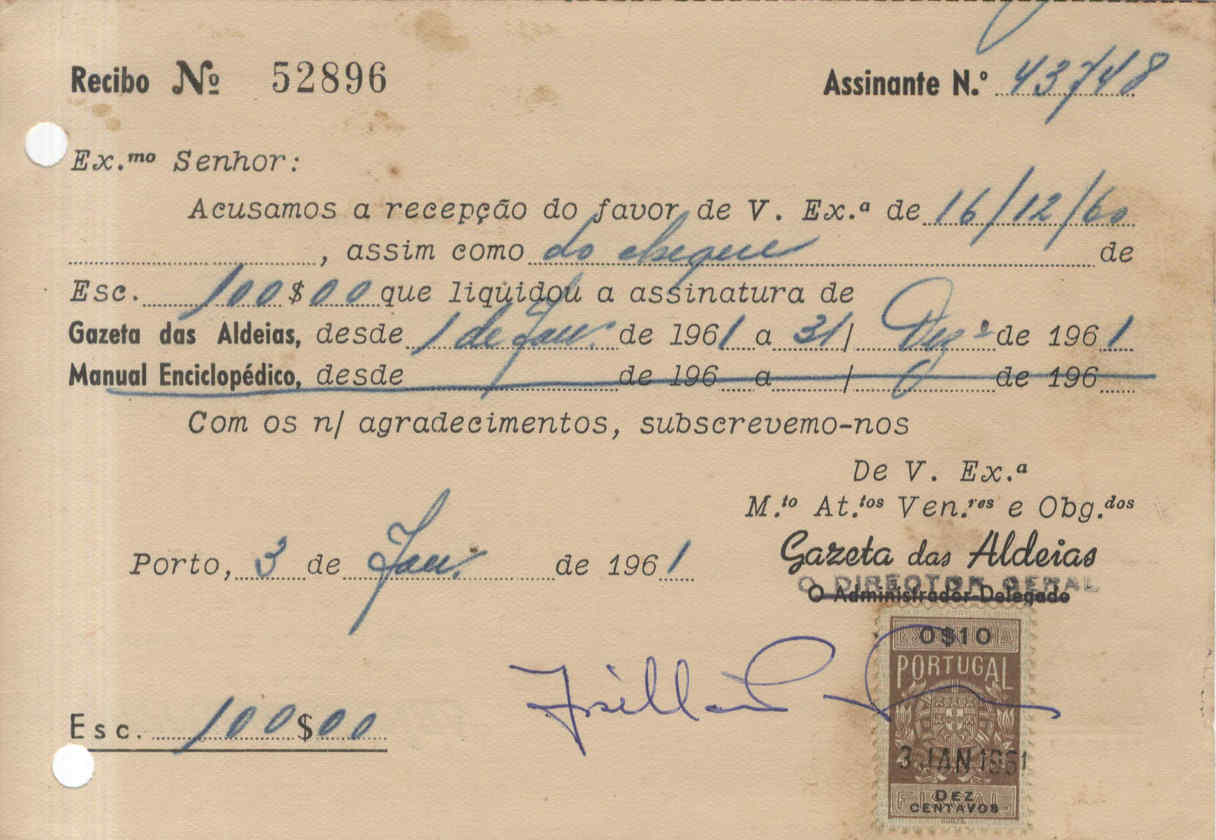 Recibo Nº 52896 Assinante N.º 43748
Ex.mo Senhor:
Acusamos a recepção do favor de V. Ex.a de 16/12/60
, assim como do cheque de
Esc. 100$00 que liquidou a assinatura de
Gazeta das Aldeias, desde 1 de Jan. de 1961 a 31/ Dez.º de 1961
Manual Enciclopédico, desde de 196 a / de 196
Com os n/ agradecimentos, subscrevemo-nos
De V. Ex.a
M.to At.tos Ven.res e Obg.dos
Porto, 3 de Jan. de 1961
Gazeta das Aldeias
O DIRECTOR GERAL
O Administrador-Delegado
0$10
PORTUGAL
3 JAN 1961
DEZ
CENTAVOS
Esc. 100$00